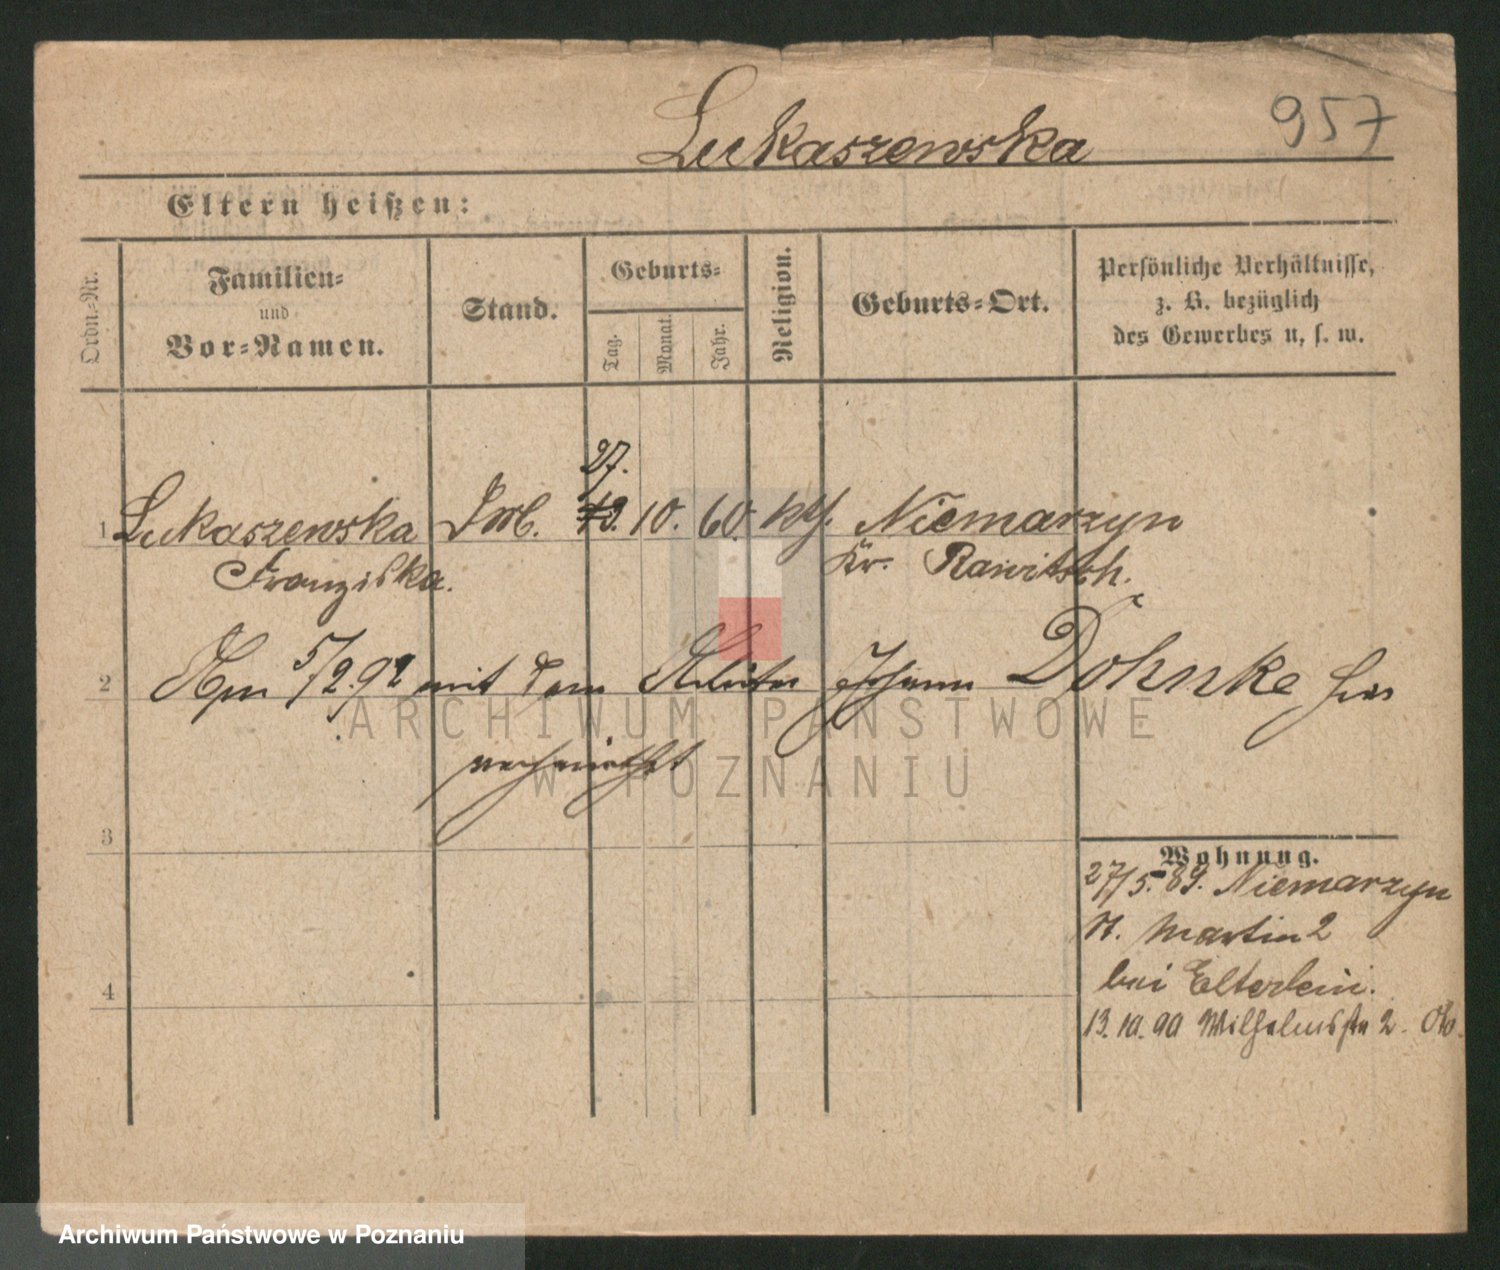 Lukaszewska 957
Eltern heißen:
Ordn.-Nr.
Familien-
und
Vor-Namen.
Stand.
Geburts-
Tag.
Monat.
Jahr.
Religion.
Geburts-Ort.
Persönliche Verhältnisse,
z. B. bezüglich
des Gewerbes u. s. w.
27.
1 Lukaszewska 10. 60. kth. Niemarzyn
Franziska. Kr. Rawitsch.
2 Am 5/2.92 mit dem Arbeiter Johann Döhnke hier
verheirathet
3
4
Wohnung.
27/5.89. Niemarzyn
St. Martin 2
bei Elterlein.
13.10.90 Wilhelmsstr 2.
ARCHIWUM PAŃSTWOWE
W POZNANIU
Archiwum Państwowe w Poznaniu